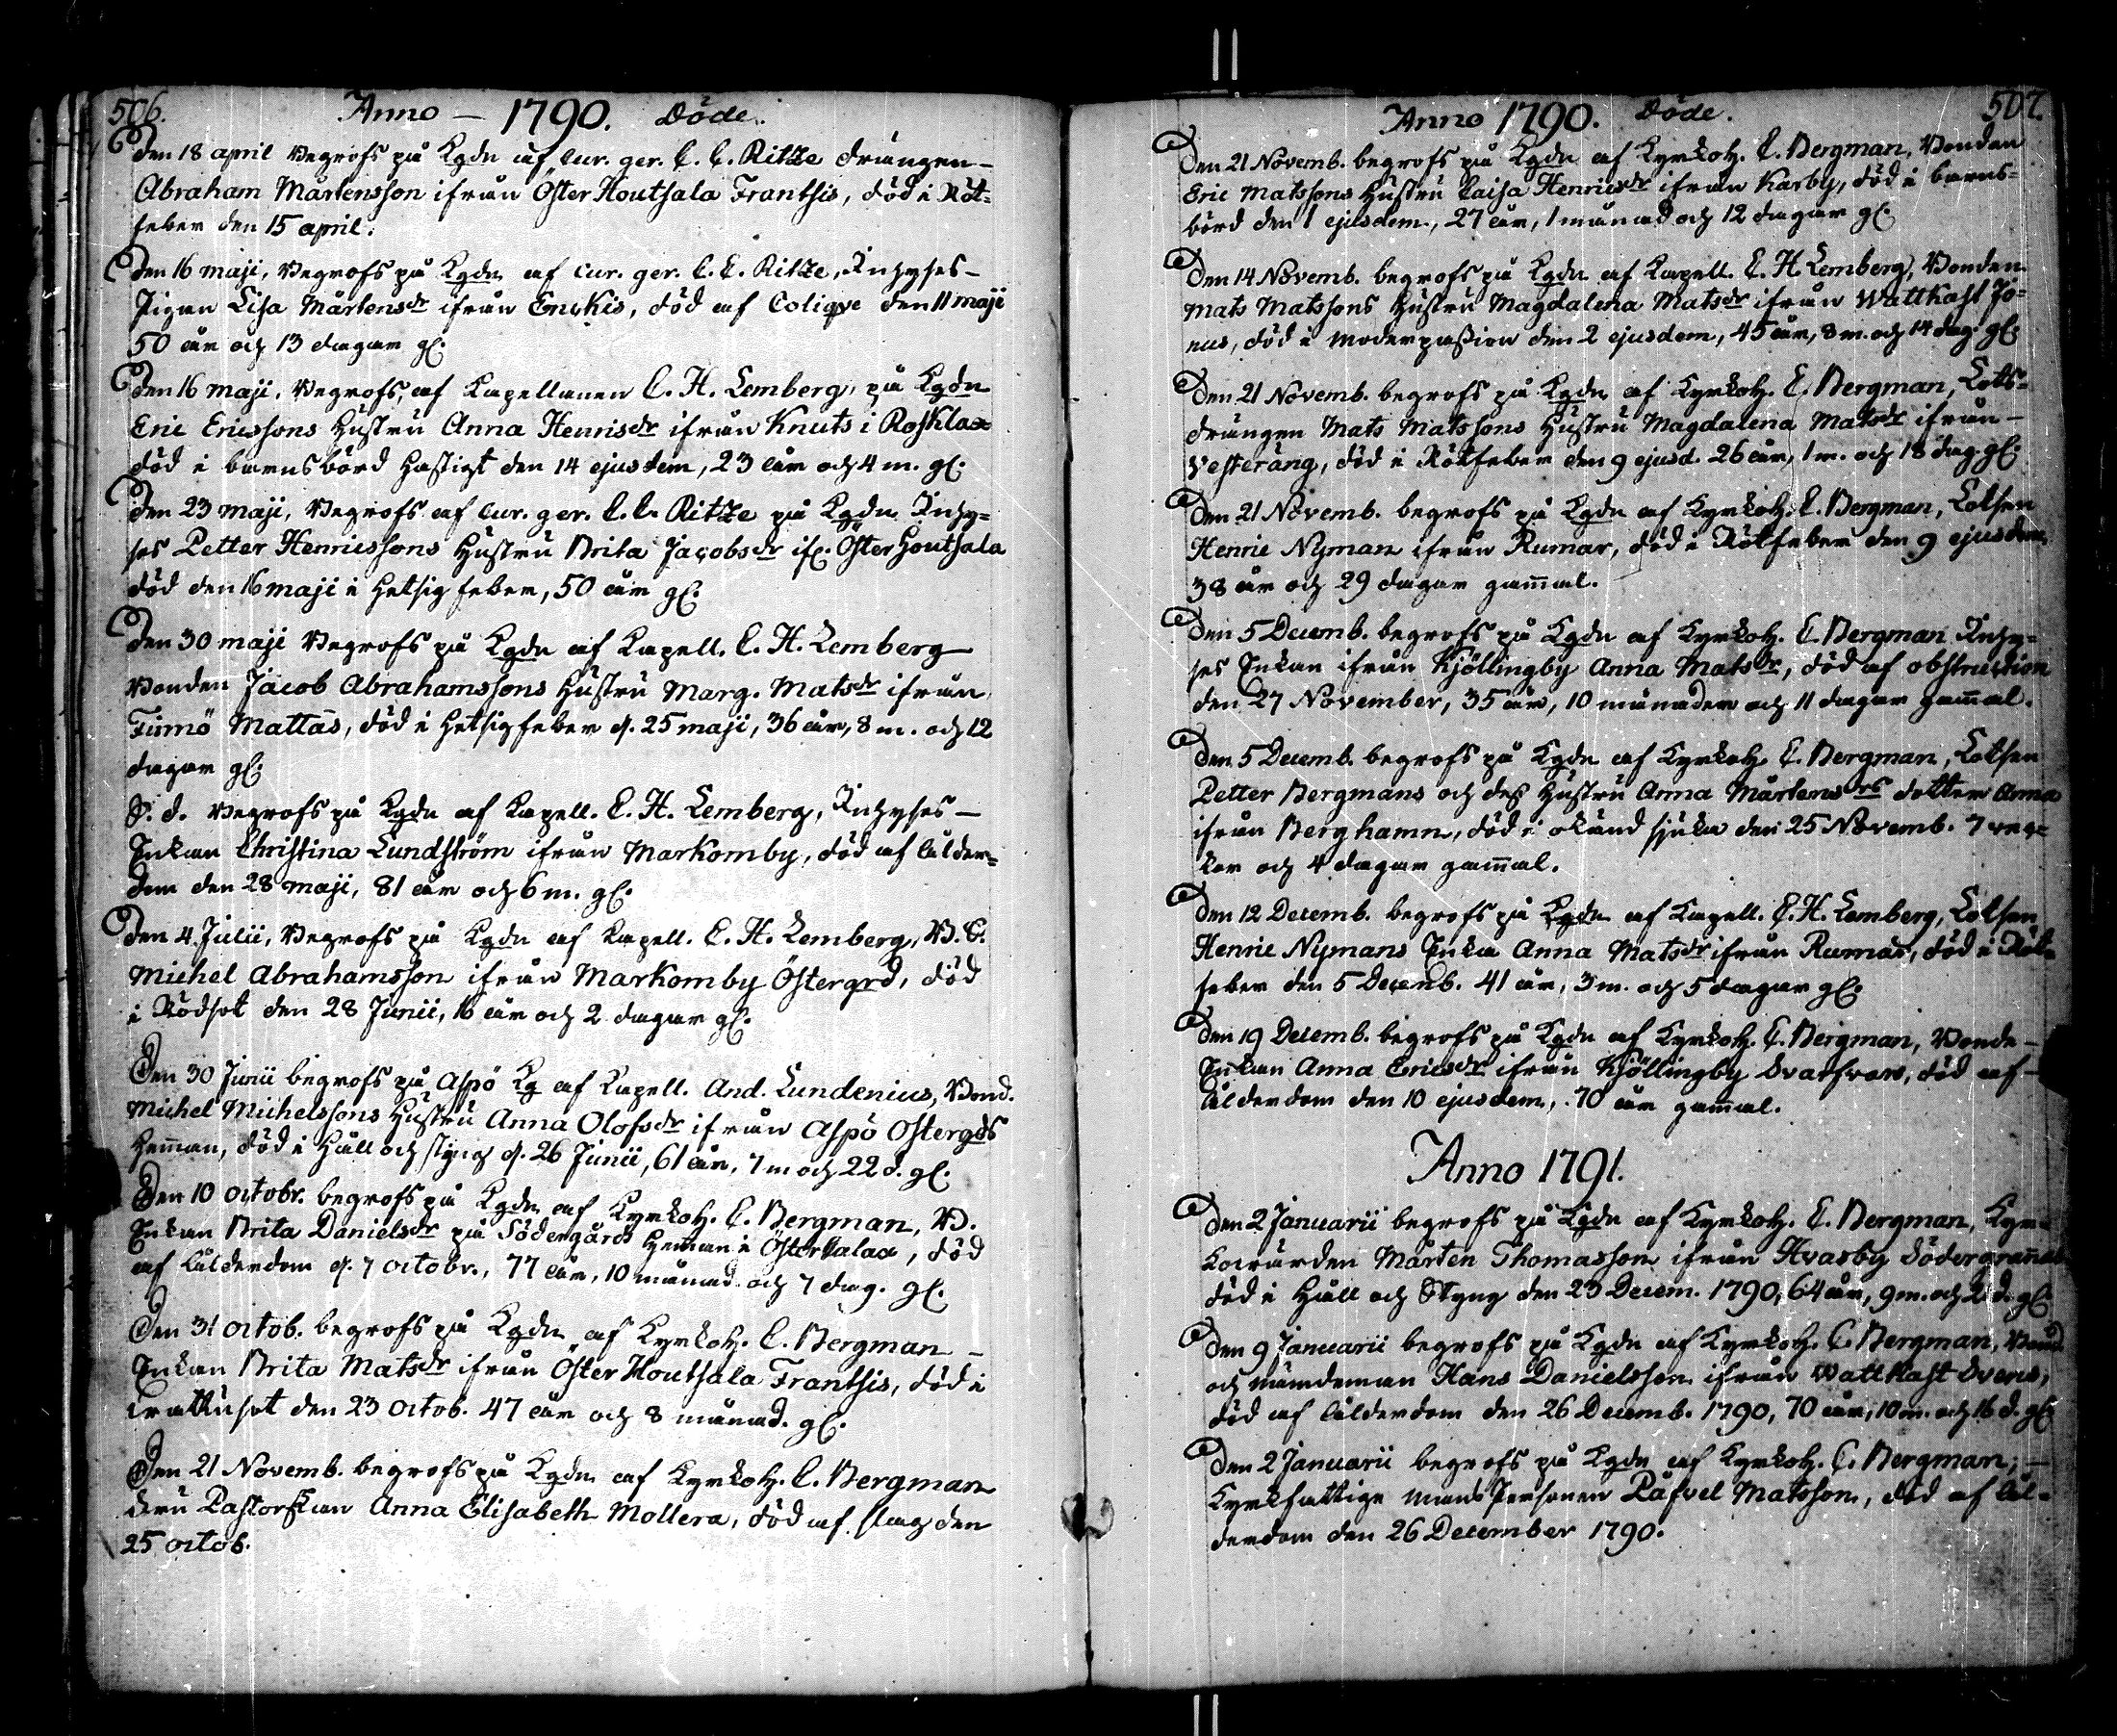 506. Anno — 1790. Döde.
Den 18 april Begrofs på Kgdn af Cur. ger. C. C. Ritze drängen
Abraham Mårtensson ifrån Öster Houtsala Frantsis, död i Röt-
feber den 15 april.
Den 16 maji, Begrofs på Kgdn af Cur. ger. C. C. Ritze, Inhyses-
Pigan Lisa Mårtensdr ifrån Enckis, död af Coliqve den 11 maji
50 åar och 13 dagar gl.
Den 16 maji, Begrofs, af Kapellanen C. H. Lemberg, på Kgdn
Eric Ericssons Hustru Anna Henricsdr ifrån Knuts i Rosklax
död i barnsbörd hastigt den 14 ejusdem, 23 åar och 4 m. gl.
Den 23 maji, Begrofs af Cur. ger. C. C. Ritze på Kgdn Inhy-
ses Petter Henricssons Hustru Brita Jacobsdr ifr. Öster Houtsala
död den 16 maji i Hetsig feber, 50 åar gl.
Den 30 maji Begrofs på Kgdn af Kapell. C. H. Lemberg
Bonden Jacob Abrahamssons Hustru Marg. Matsdr ifrån
Finnö Mattas, död i Hetsigfeber d. 25 maji, 36 åar, 8 m. och 12
dagar gl.
S. d. Begrofs på Kgdn af Kapell. C. H. Lemberg, Inhyses-
Enkan Christina Lundström ifrån Markomby, död af ålder-
dom den 28 maji, 81 åar och 6 m. gl.
Den 4 Julii, Begrofs på Kgdn af Kapell. C. H. Lemberg, B. S.
Michel Abrahamsson ifrån Markomby Östergrd, död
i Rödsot den 28 Junii, 16 åar och 2 dagar gl.
Den 30 Junii begrofs på Aspö Kg af Kapell. And. Lundenius, Bond.
Michel Michelssons Hustru Anna Olofsdr ifrån Aspö Östergds
Heman, död i Håll och styng d. 26 Junii, 61 åar, 7 m och 22 d. gl.
Den 10 octobr. begrofs på Kgdn af Kyrkoh. C. Bergman, B.
Enkan Brita Danielsdr på Södergårds Heman i Österkalax, död
af ålderdom d. 7 octobr., 77 åar, 10 månad och 7 dag. gl.
Den 31 octob. begrofs på Kgdn af Kyrkoh. C. Bergman
Enkan Brita Matsdr ifrån Öster Houtsala Frantsis, död i
den 23 octob. 47 åar och 8 månad. gl.
Den 21 Novemb. begrofs på Kgdn af Kyrkoh. C. Bergman
Fru Pastorskan Anna Elisabeth Mollera, död af slag den
25 octob.
Anno 1790. Döde. 507.
Den 21 Novemb. begrofs på Kgdn af Kyrkoh. C. Bergman, Bonden
Eric Matssons Hustru Caisa Henricsdr ifrån Karby, död i barns-
börd den 1 ejusdem, 27 åar, 1 månad och 12 dagar gl.
Den 14 Novemb. begrofs på Kgdn af Kapell. C. H. Lemberg, Bonden
Mats Matssons Hustru Magdalena Matsdr ifrån Wattkast Jo-
nus, död i moderpassion den 2 ejusdem, 45 åar, 8 m. och 14 dag. gl.
Den 21 Novemb. begrofs på Kgdn af Kyrkoh. C. Bergman, Lots-
drängen Mats Matssons Hustru Magdalena Matsdr ifrån
Vesteräng, död i Rötfeber den 9 ejusd. 26 åar, 1 m. och 18 dag. gl.
Den 21 Novemb. begrofs på Kgdn af Kyrkoh. C. Bergman, Lotsen
Henric Nyman ifrån Rumar, död i Rötfeber den 9 ejusdem,
38 åar och 29 dagar gammal.
Den 5 Decemb. begrofs på Kgdn af Kyrkoh. C. Bergman Inhy-
ses Enkan ifrån Kjöllingby Anna Matsdr, död af obstruction
den 27 November, 35 åar, 10 månader och 11 dagar gammal.
Den 5 Decemb. begrofs på Kgdn af Kyrkoh. C. Bergman, Lotsen
Petter Bergmans och dess Hustru Anna Mårtensdrs dotter Anna
ifrån Berghamn, död i okänd sjuka den 25 Novemb. 7 vec-
kor och 4 dagar gammal.
Den 12 Decemb. begrofs på Kgdn af Kapell. C. H. Lemberg, Lotsen
Henric Nymans Enka Anna Matsdr ifrån Rumar, död i Röt-
feber den 5 Decemb. 41 åar, 3 m. och 5 dagar gl.
Den 19 Decemb. begrofs på Kgdn af Kyrkoh. C. Bergman, Bonde-
Enkan Anna Ericsdr ifrån Kjöllingby Svarfvars, död af
ålderdom den 10 ejusdem, 70 åar gammal.
Anno 1791.
Den 2 Januarii begrofs på Kgdn af Kyrkoh. C. Bergman, Kyr-
kovärden Mårten Thomasson ifrån Hvasby Södergrannas
död i Håll och Styng den 23 Decem. 1790, 64 åar, 9 m. och 2 d. gl.
Den 9 Januarii begrofs på Kgdn af Kyrkoh. C. Bergman, Bond.
och nämdeman Hans Danielsson ifrån Wattkast Svens,
död af ålderdom den 26 Decemb. 1790, 70 åar, 10 m. och 16 d. gl.
Den 2 Januarii begrofs på Kgdn af Kyrkoh. C. Bergman,
Kyrkfattige mans Personen Påfvel Matsson, död af ål-
derdom den 26 December 1790.